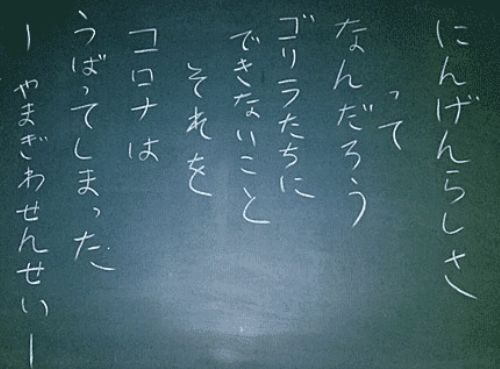 にんげんらしさ
って
なんだろう
ゴリラたちに
できないこと
それを
コロナは
うばってしまった
ーやまぎわせんせいー